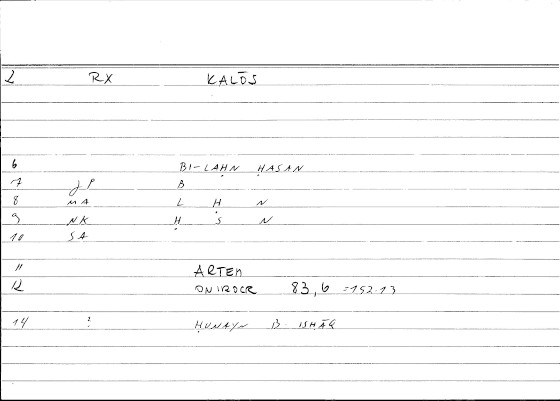 2 RX KALŌS
6 BI-LAḤN ḤASAN
7 JP B
8 MA L Ḥ N
9 NK Ḥ S N
10 SA
11 ARTEM
12 ONIROCR 83,6 =152.13
14 ? ḤUNAYN B ISḤĀQ